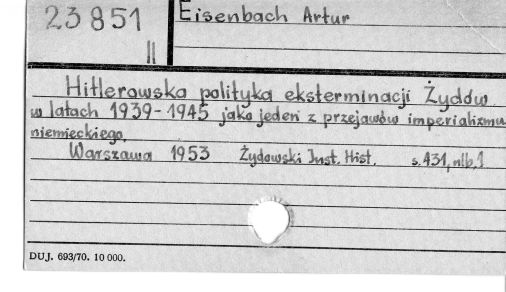 23851
II
Eisenbach Artur
Hitlerowska polityka eksterminacji Żydów
w latach 1939-1945 jako jeden z przejawów imperializmu
niemieckiego.
Warszawa 1953 Żydowski Inst. Hist. s. 431, nlb. 1
DUJ. 693/70. 10 000.